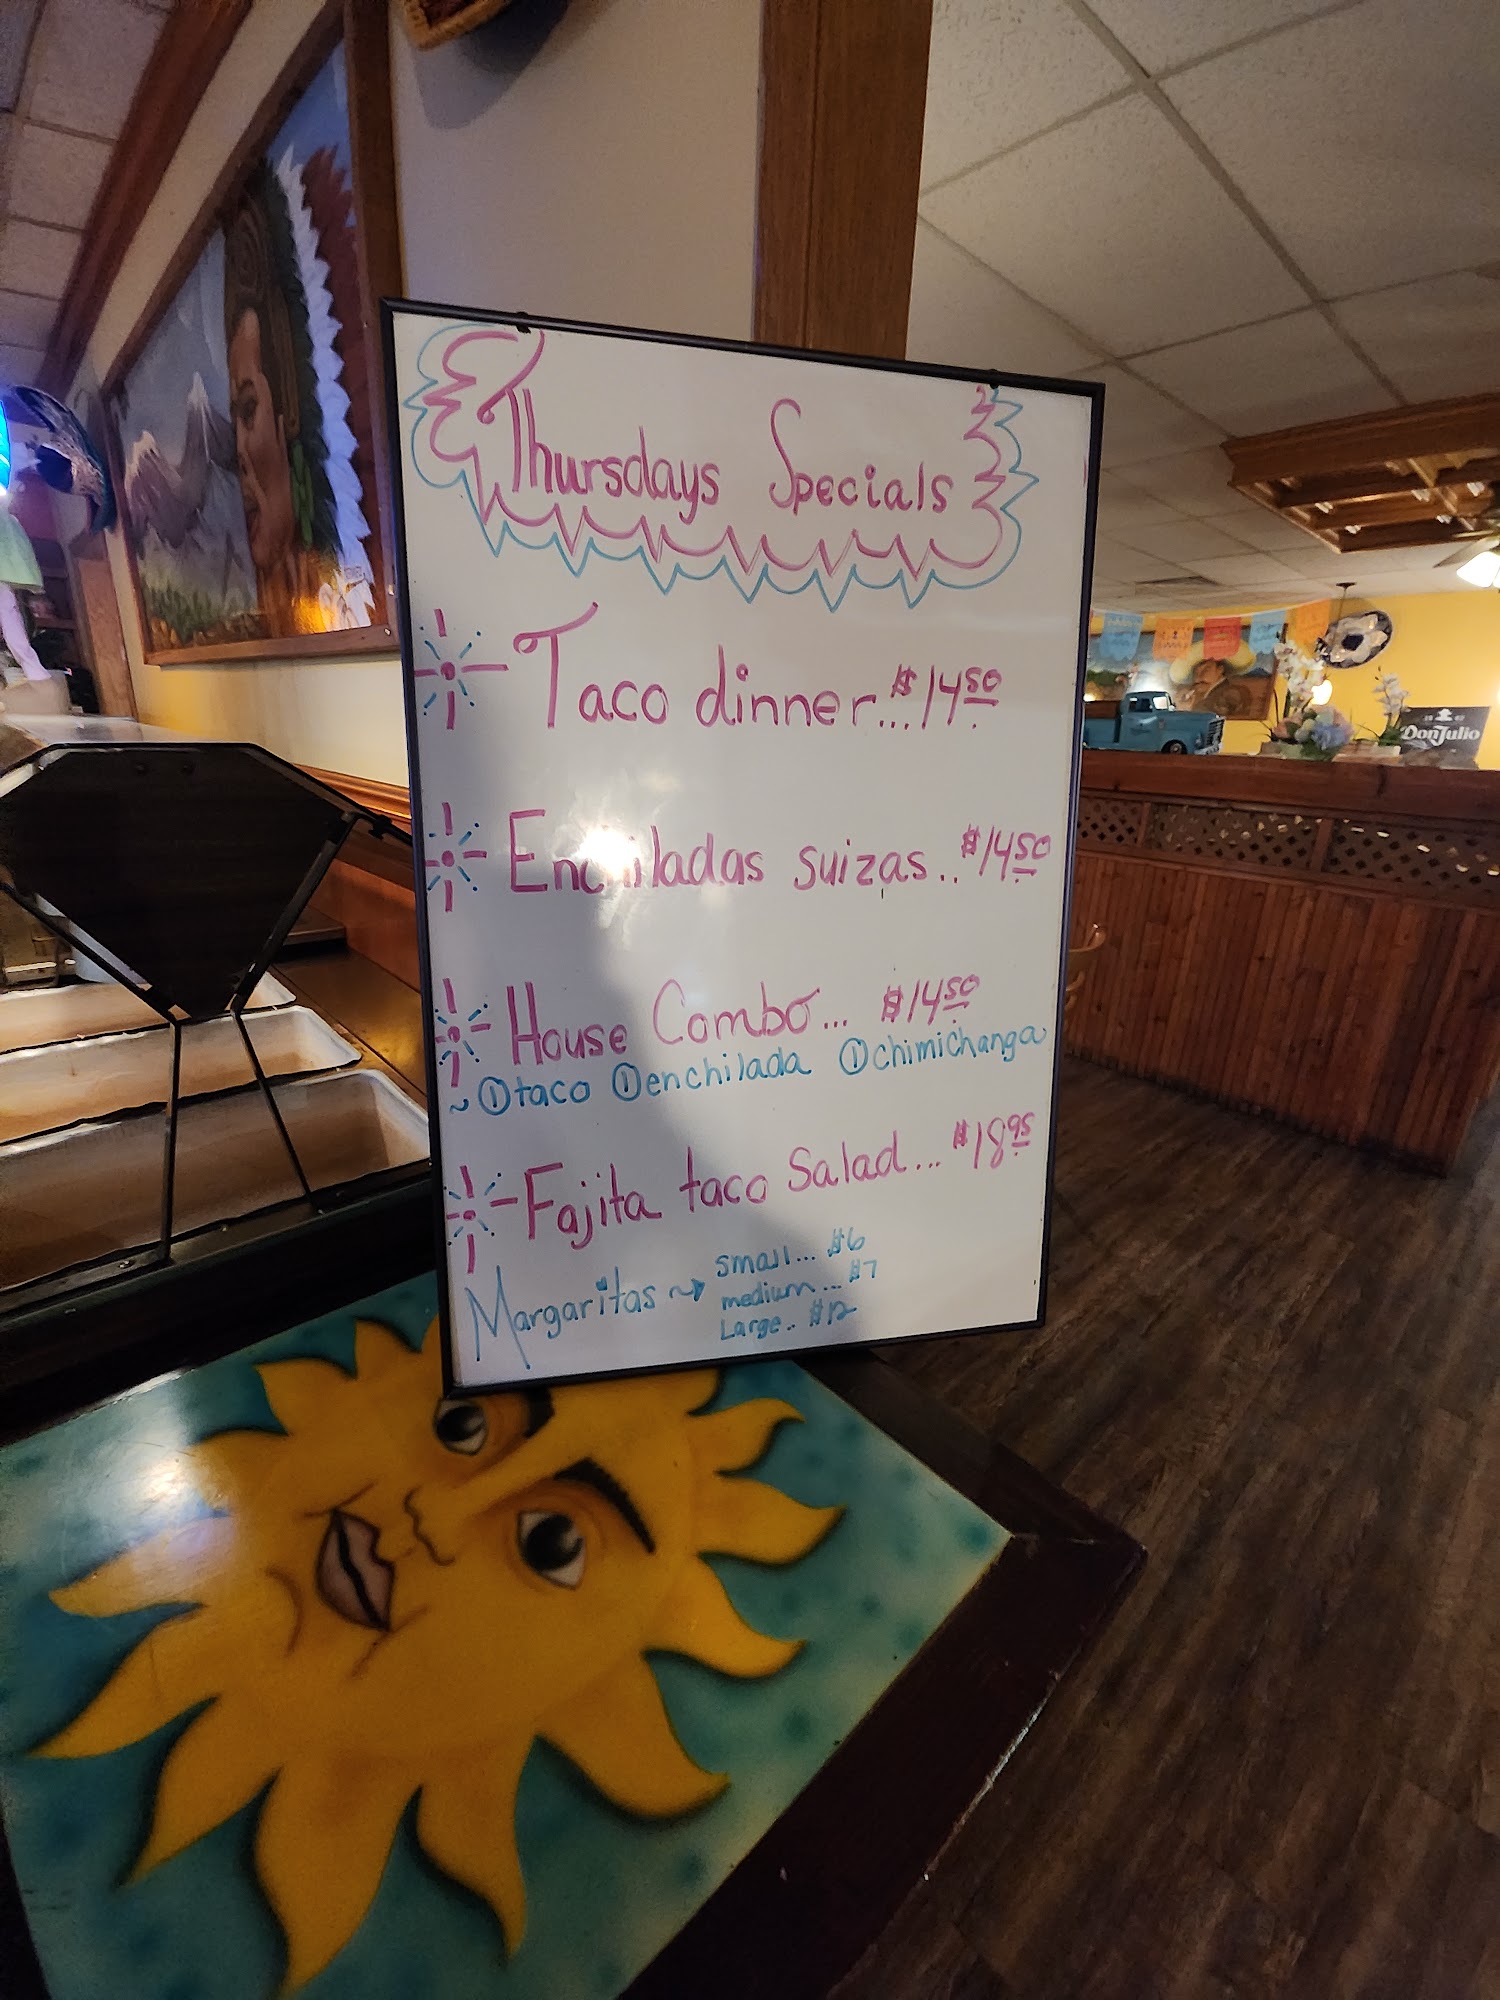 Thursdays Specials
Taco dinner... $14.50
Enchiladas suizas.. $14.50
House Combo... $14.50
~ ① taco ① enchilada ① chimichanga
Fajita taco Salad... $18.95
Margaritas ~> small... $6
medium... $7
Large.. $12
Don Julio